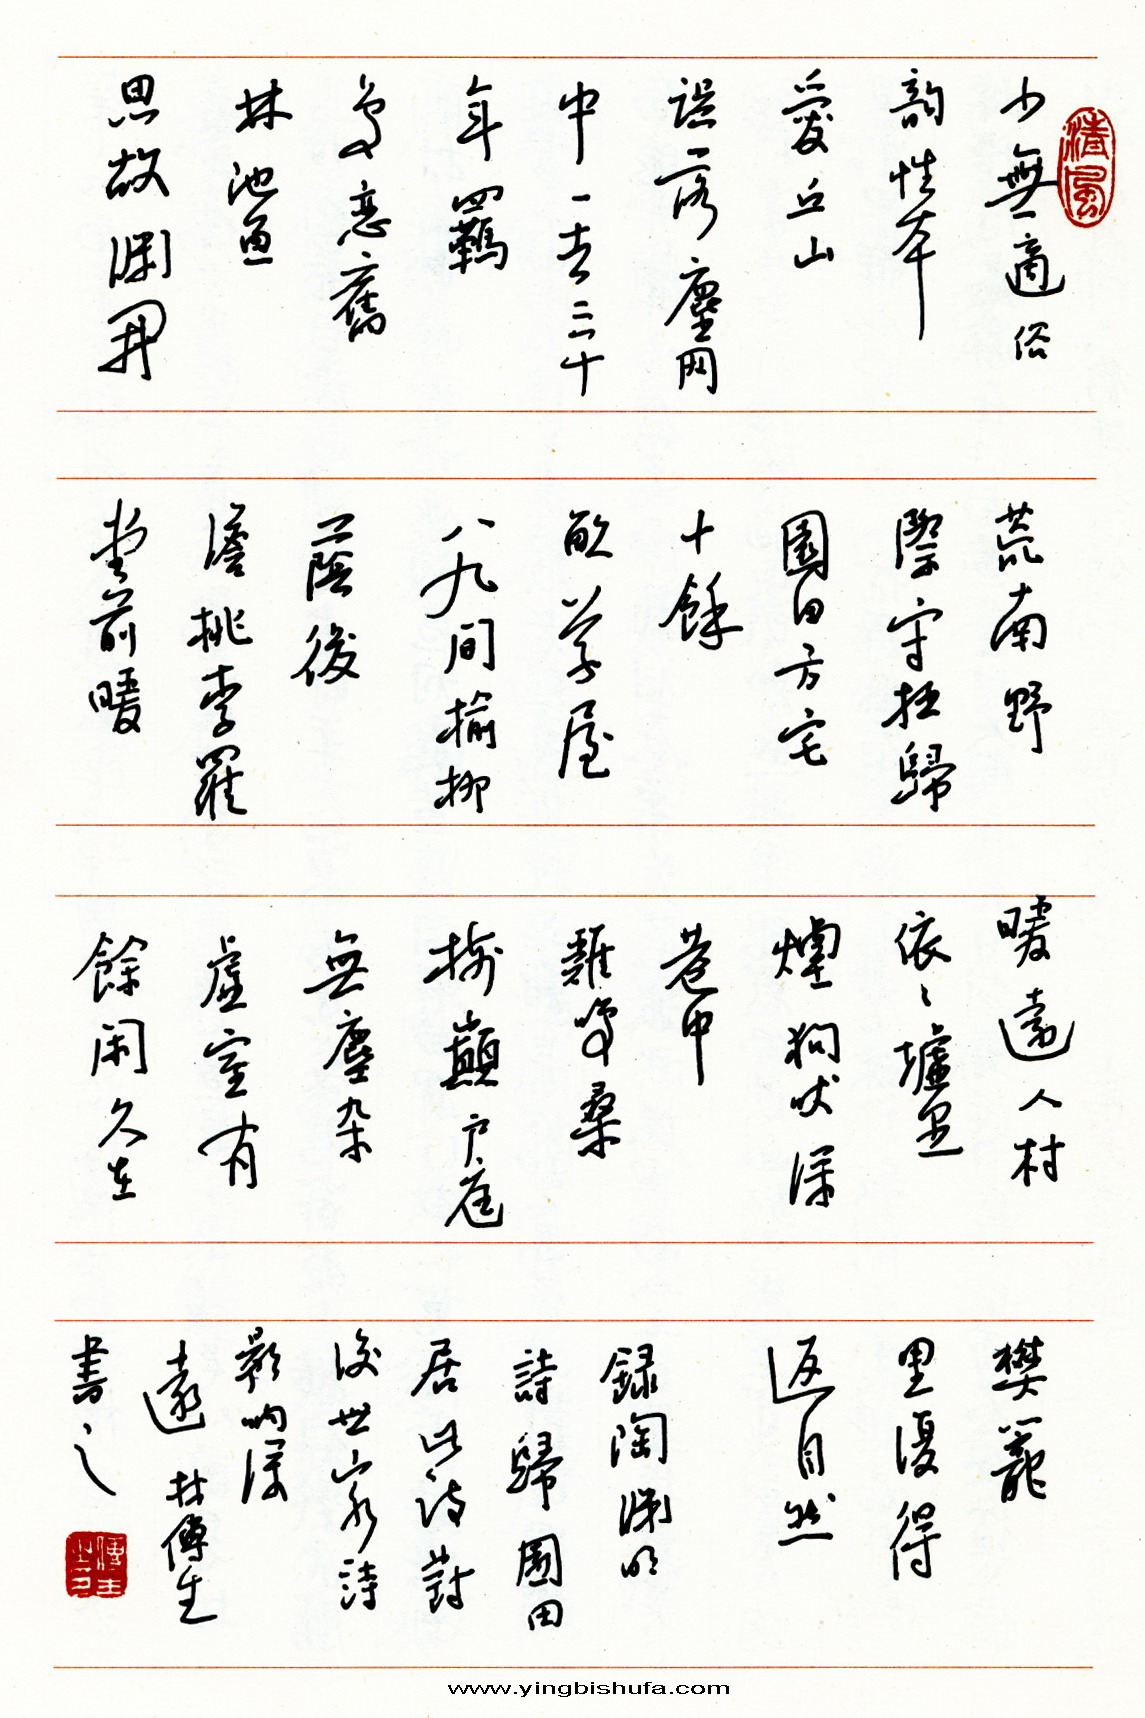 清風
少無適俗
韵性本
愛丘山
誤落塵网
中一去三十
年羈
鳥恋舊
林池魚
思故渊開
荒南野
際守拙歸
園田方宅
十餘
畝草屋
八九间榆柳
蔭後
簷桃李羅
堂前暖
暖遠人村
依〻墟里
煙狗吠深
巷中
雞鳴桑
樹巔户庭
無塵杂
虚室有
餘闲久在
樊籠
里復得
返自然
録陶渊明
詩歸園田
居此诗對
後世山水詩
影响深
遠 林傅生
書之
www.yingbishufa.com